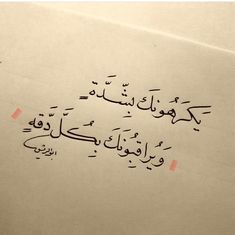 يَكرَهُونَكَ بِشَّدَةٍ
وَيُراقِبُونَكَ بِكُلَّ دَقهٍ